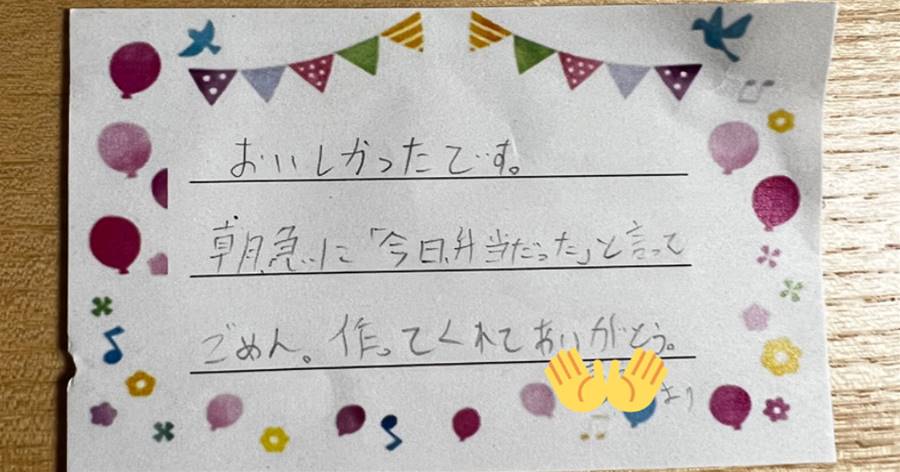 おいしかったです。
朝急に「今日弁当だった」と言って
ごめん。作ってくれてありがとう。
より